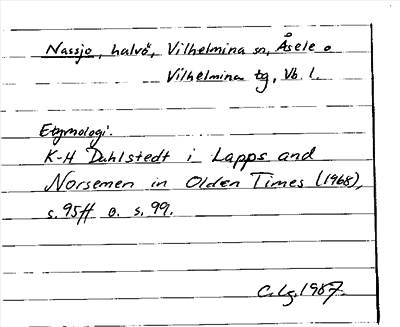 Nassjo, halvö, Vilhelmina sn, Åsele o
Vilhelmina tg, Vb. l.
Etymologi.
K-H Dahlstedt i Lapps and
Norsemen in Olden Times (1968),
s. 95ff o. s. 99.
C.Lg. 1987.